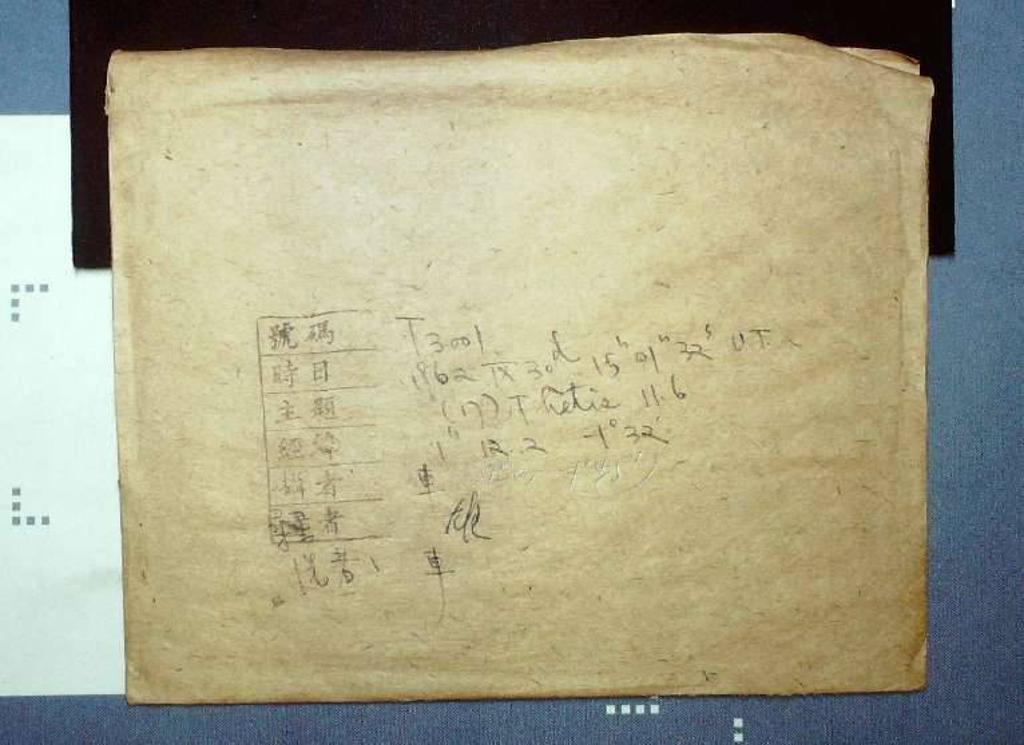 號碼 T3001
時日 1962 IX 30d 15h 01m 32s U.T.
主題 (17) Thetis 11.6
經緯 1h 12.2 -1° 32'
者 車
者
洗者 車